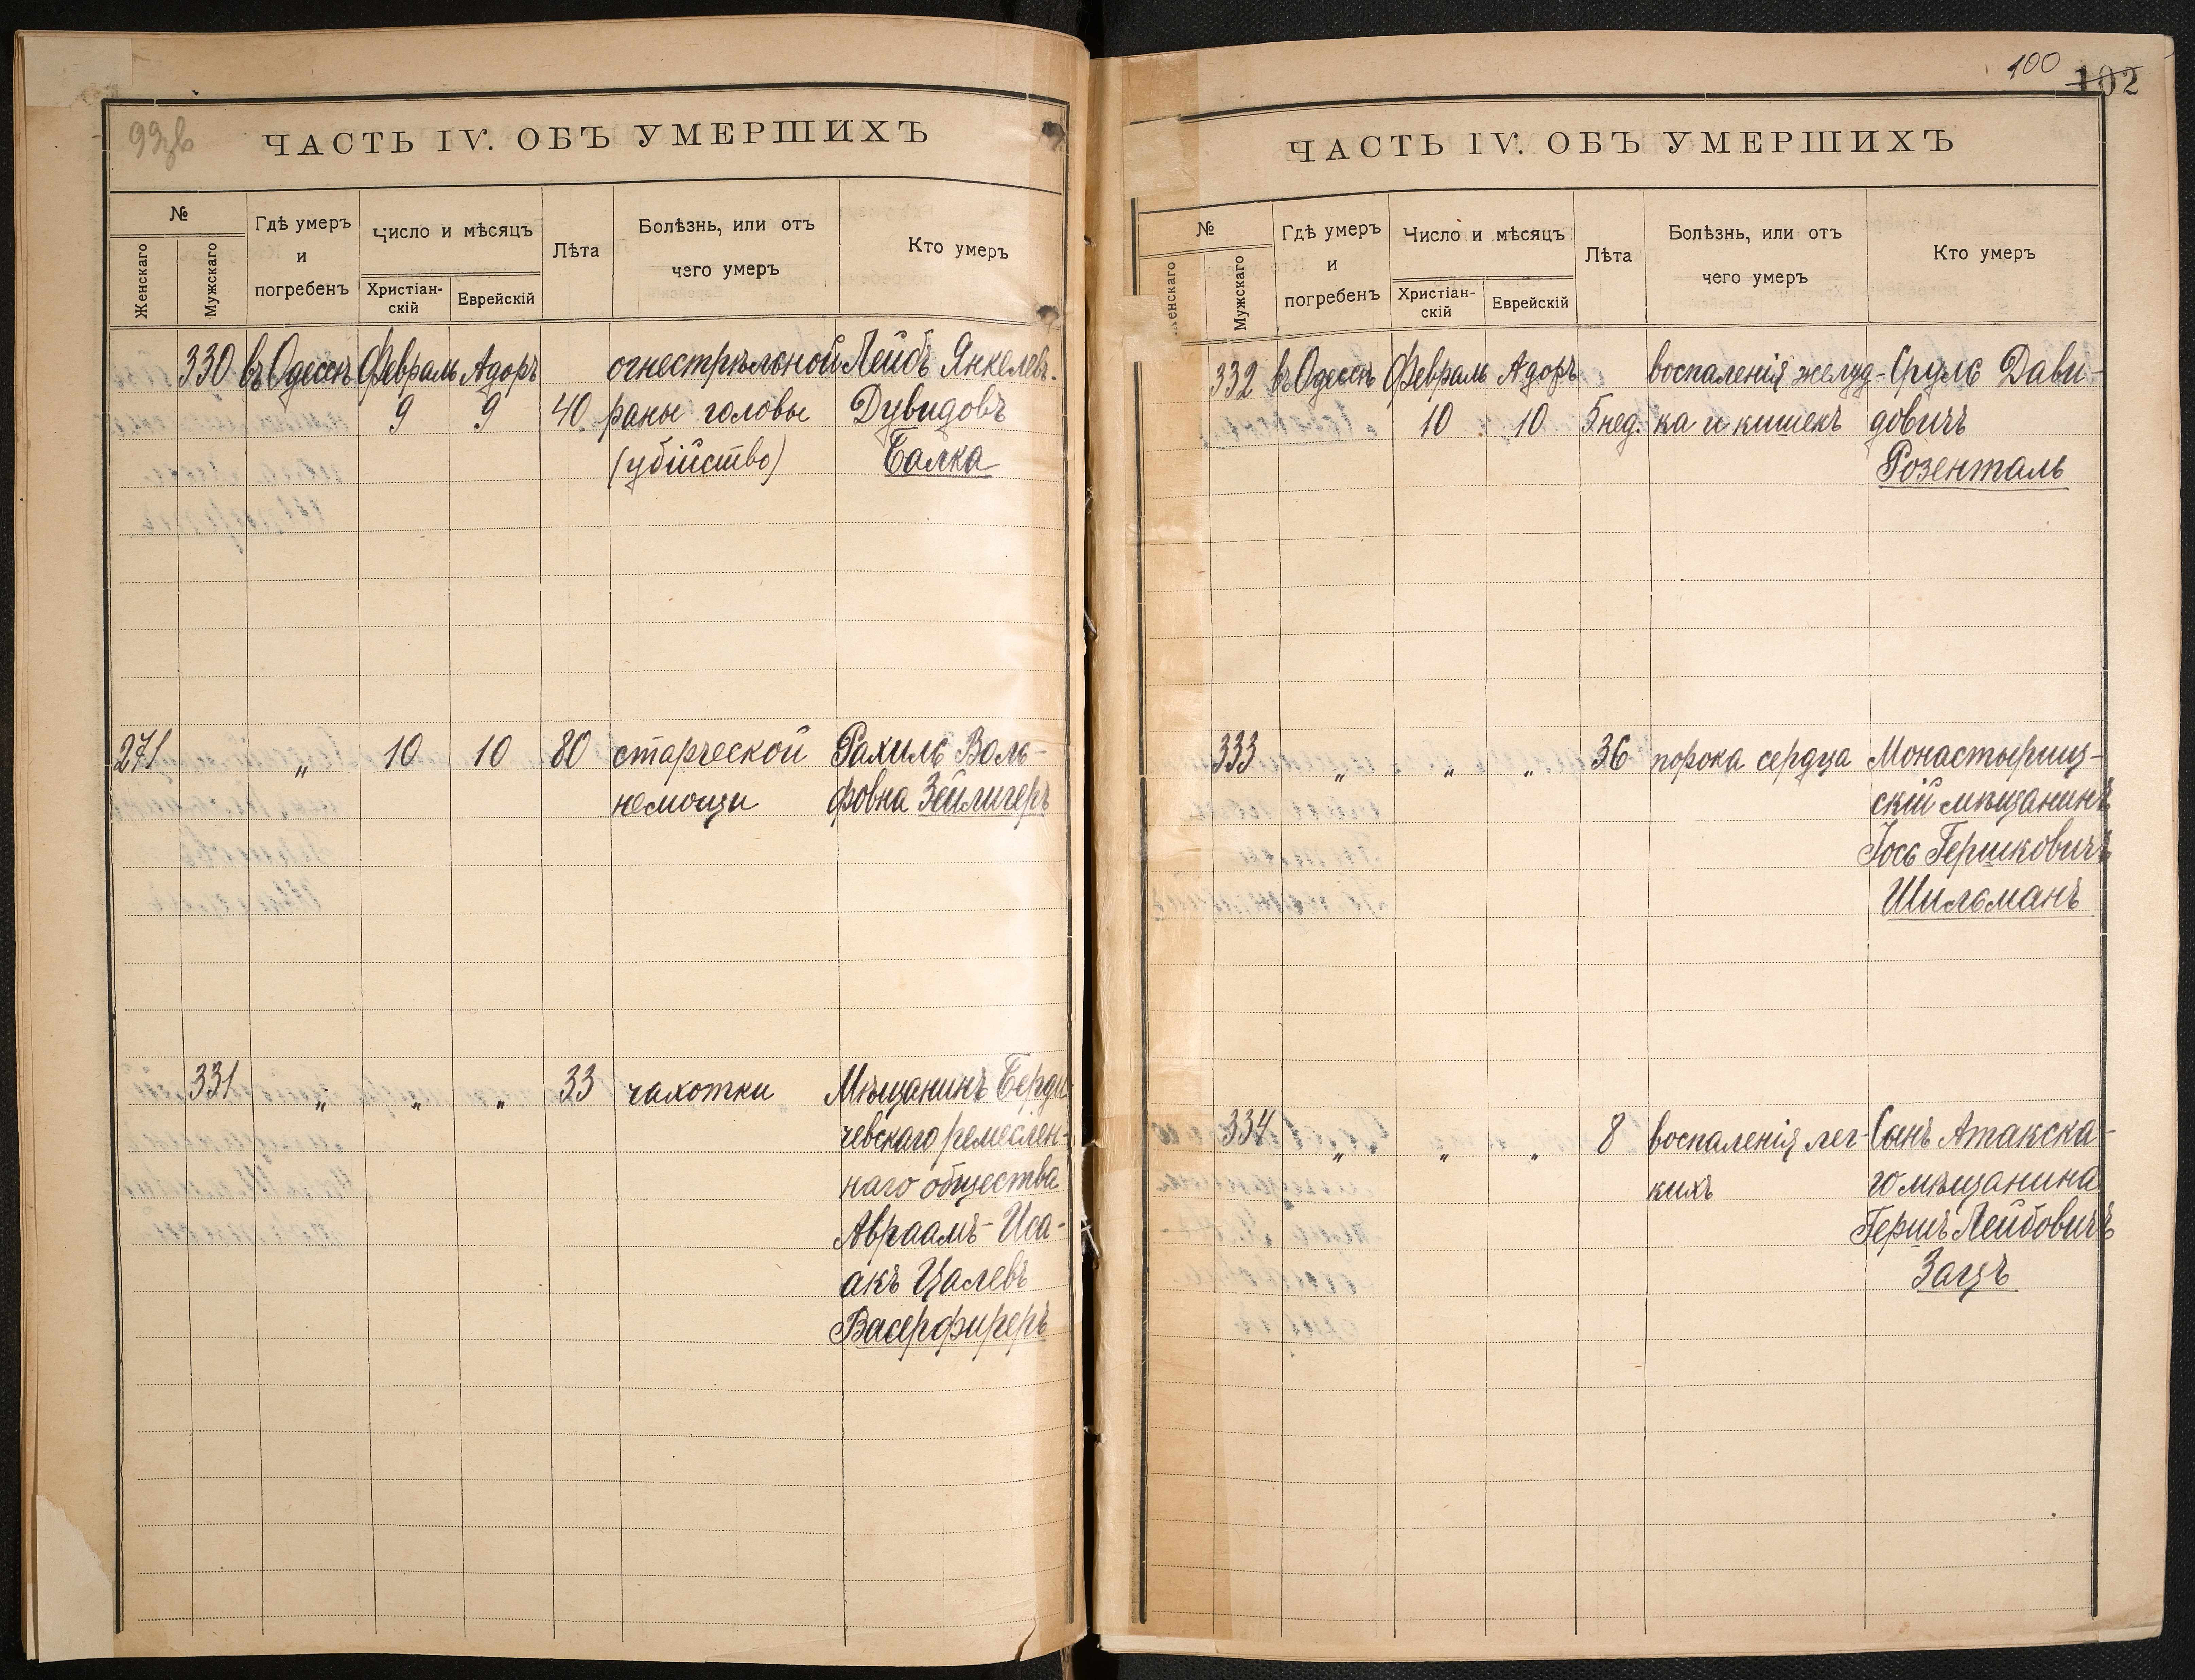 93об
ЧАСТЬ IV. ОБЪ УМЕРШИХЪ
№
Женскаго
Мужскаго
Гдѣ умеръ
и
погребенъ
Число и мѣсяцъ
Христіан-
скій
Еврейскій
Лѣта
Болѣзнь, или отъ
чего умеръ
Кто умеръ
330 въ Одессѣ Февраль Адоръ огнестрѣльной Лейбъ Янкелев.
9 9 40 раны головы Дувидовъ
(убійство) Балка
271 „ 10 10 80 старческой Рахиль Воль-
немощи фовна Зейлигеръ
331 „ „ „ 33 чахотки Мѣщанинъ Берди-
чевскаго ремеслен-
наго общества
Авраамъ-Иса-
акъ Цалевъ
Васерфиреръ
100 102
ЧАСТЬ IV. ОБЪ УМЕРШИХЪ
№
Женскаго
Мужскаго
Гдѣ умеръ
и
погребенъ
Число и мѣсяцъ
Христіан-
скій
Еврейскій
Лѣта
Болѣзнь, или отъ
чего умеръ
Кто умеръ
332 въ Одессѣ Февраль Адоръ воспаленія желуд- Сруль Дави-
10 10 5 нед. ка и кишекъ довичъ
Розенталь
333 „ „ „ 36 порока сердца Монастырищ-
скій мѣщанинъ
Іось Гершковичъ
Шильманъ
334 „ „ „ 8 воспаленія лег- Сынъ Атакска-
кихъ го мѣщанина
Гершъ Лейбовичъ
Зацъ